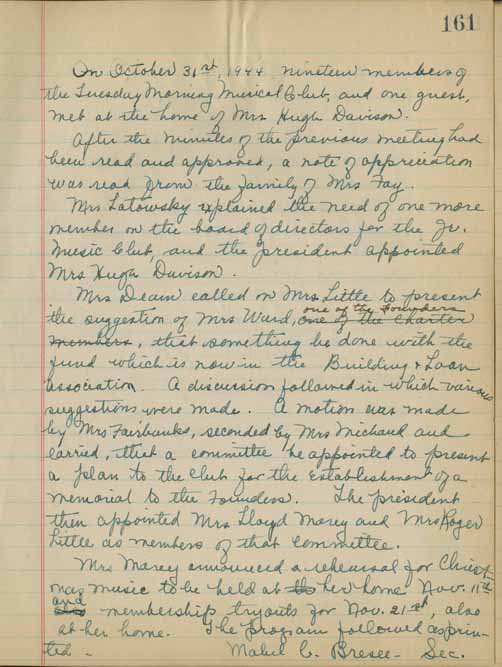 161
On October 31st, 1944 nineteen members of
the Tuesday Morning Musical Club, and one guest,
met at the home of Mrs Hugh Davison.
After the minutes of the previous meeting had
been read and approved, a note of appreciation
was read from the family of Mrs Fay.
Mrs Latowsky explained the need of one more
member on the board of directors for the Jr.
Music Club, and the president appointed
Mrs Hugh Davison.
Mrs Deam called on Mrs Little to present
one of the Founders
the suggestion of Mrs Ward, one of the Charter
members, that something be done with the
fund which is now in the Building & Loan
association. A discussion followed in which various
suggestions were made. A motion was made
by Mrs Fairbanks, seconded by Mrs Michaud and
carried, that a committee be appointed to present
a plan to the club for the Establishment of a
memorial to the Founders. The president
then appointed Mrs Lloyd Morey and Mrs Roger
Little as members of that committee.
Mrs Morey announced a rehearsal for Christ-
mas music to be held at her home Nov. 11th
and
also membership tryouts for Nov. 21st, also
at her home. The program followed as prin-
ted - Mabel C. Bresee - Sec.